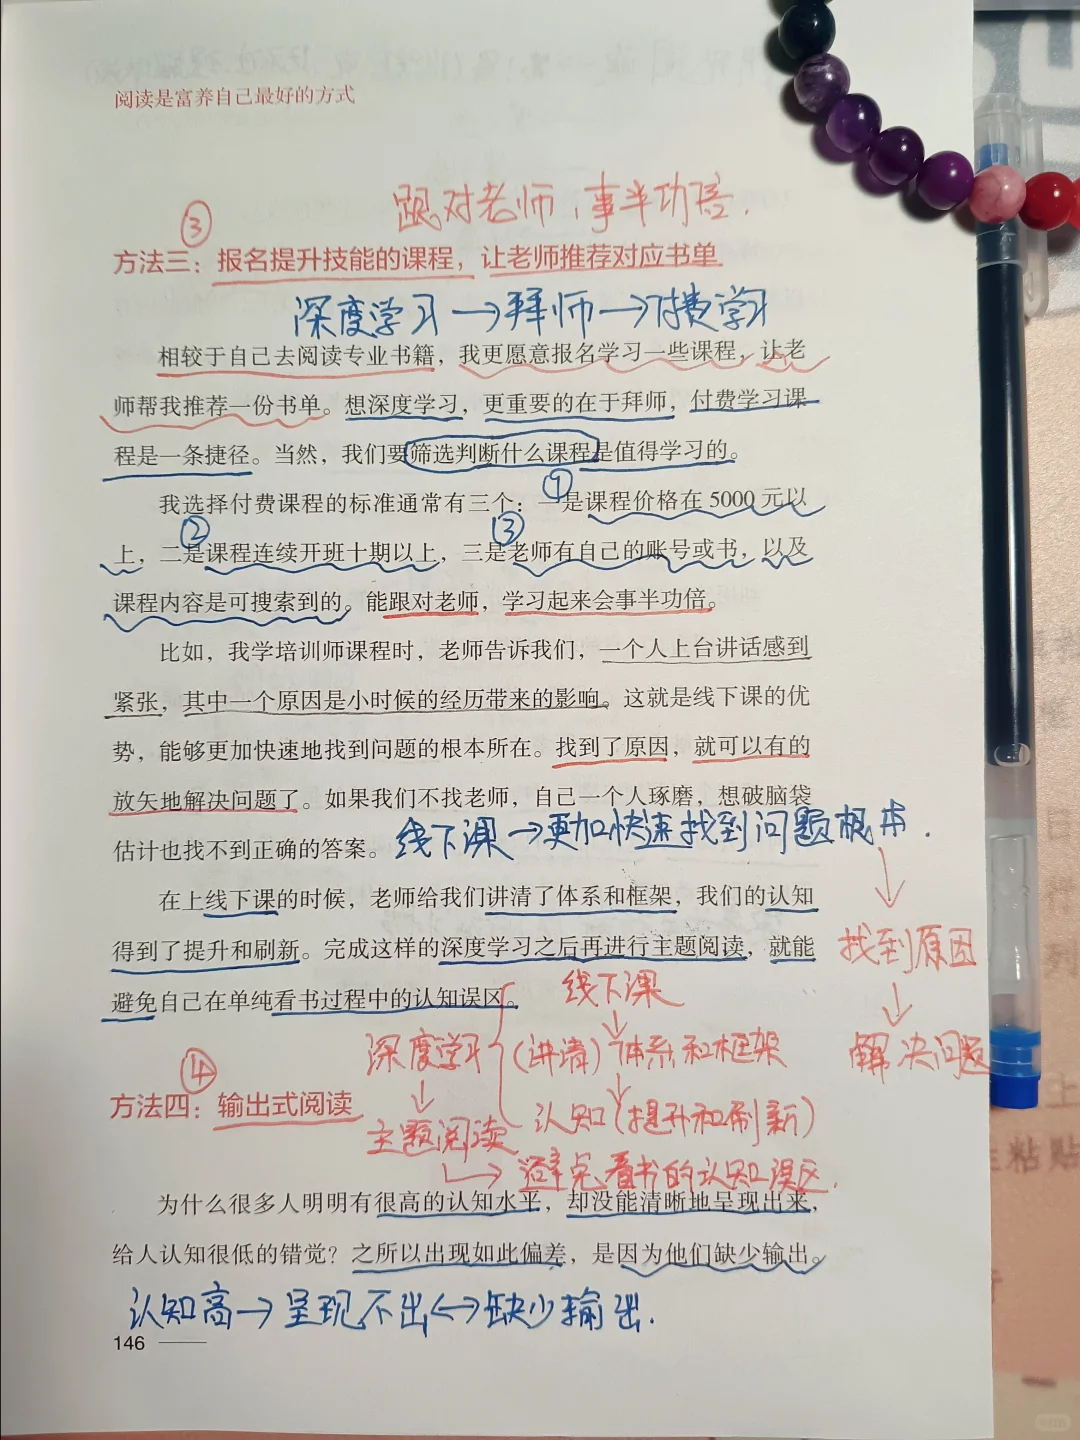 阅读是富养自己最好的方式
跟对老师，事半功倍.
③
方法三：报名提升技能的课程，让老师推荐对应书单
深度学习→拜师→付费学习
相较于自己去阅读专业书籍，我更愿意报名学习一些课程，让老
师帮我推荐一份书单。想深度学习，更重要的在于拜师，付费学习课
程是一条捷径。当然，我们要筛选判断什么课程是值得学习的。
①
我选择付费课程的标准通常有三个：一是课程价格在 5000 元以
② ③
上，二是课程连续开班十期以上，三是老师有自己的账号或书，以及
课程内容是可搜索到的。能跟对老师，学习起来会事半功倍。
比如，我学培训师课程时，老师告诉我们，一个人上台讲话感到
紧张，其中一个原因是小时候的经历带来的影响。这就是线下课的优
势，能够更加快速地找到问题的根本所在。找到了原因，就可以有的
放矢地解决问题了。如果我们不找老师，自己一个人琢磨，想破脑袋
估计也找不到正确的答案。
线下课→更加快速找到问题根本.
↓
找到原因
↓
解决问题
在上线下课的时候，老师给我们讲清了体系和框架，我们的认知
得到了提升和刷新。完成这样的深度学习之后再进行主题阅读，就能
避免自己在单纯看书过程中的认知误区。
线下课
↓
深度学习 (讲清) 体系和框架
↓ ↓
主题阅读 认知(提升和刷新)
→ 看书的认知误区.
④
方法四：输出式阅读
为什么很多人明明有很高的认知水平，却没能清晰地呈现出来，
给人认知很低的错觉？之所以出现如此偏差，是因为他们缺少输出。
认知高→呈现不出↔缺少输出.
146
上
粘贴